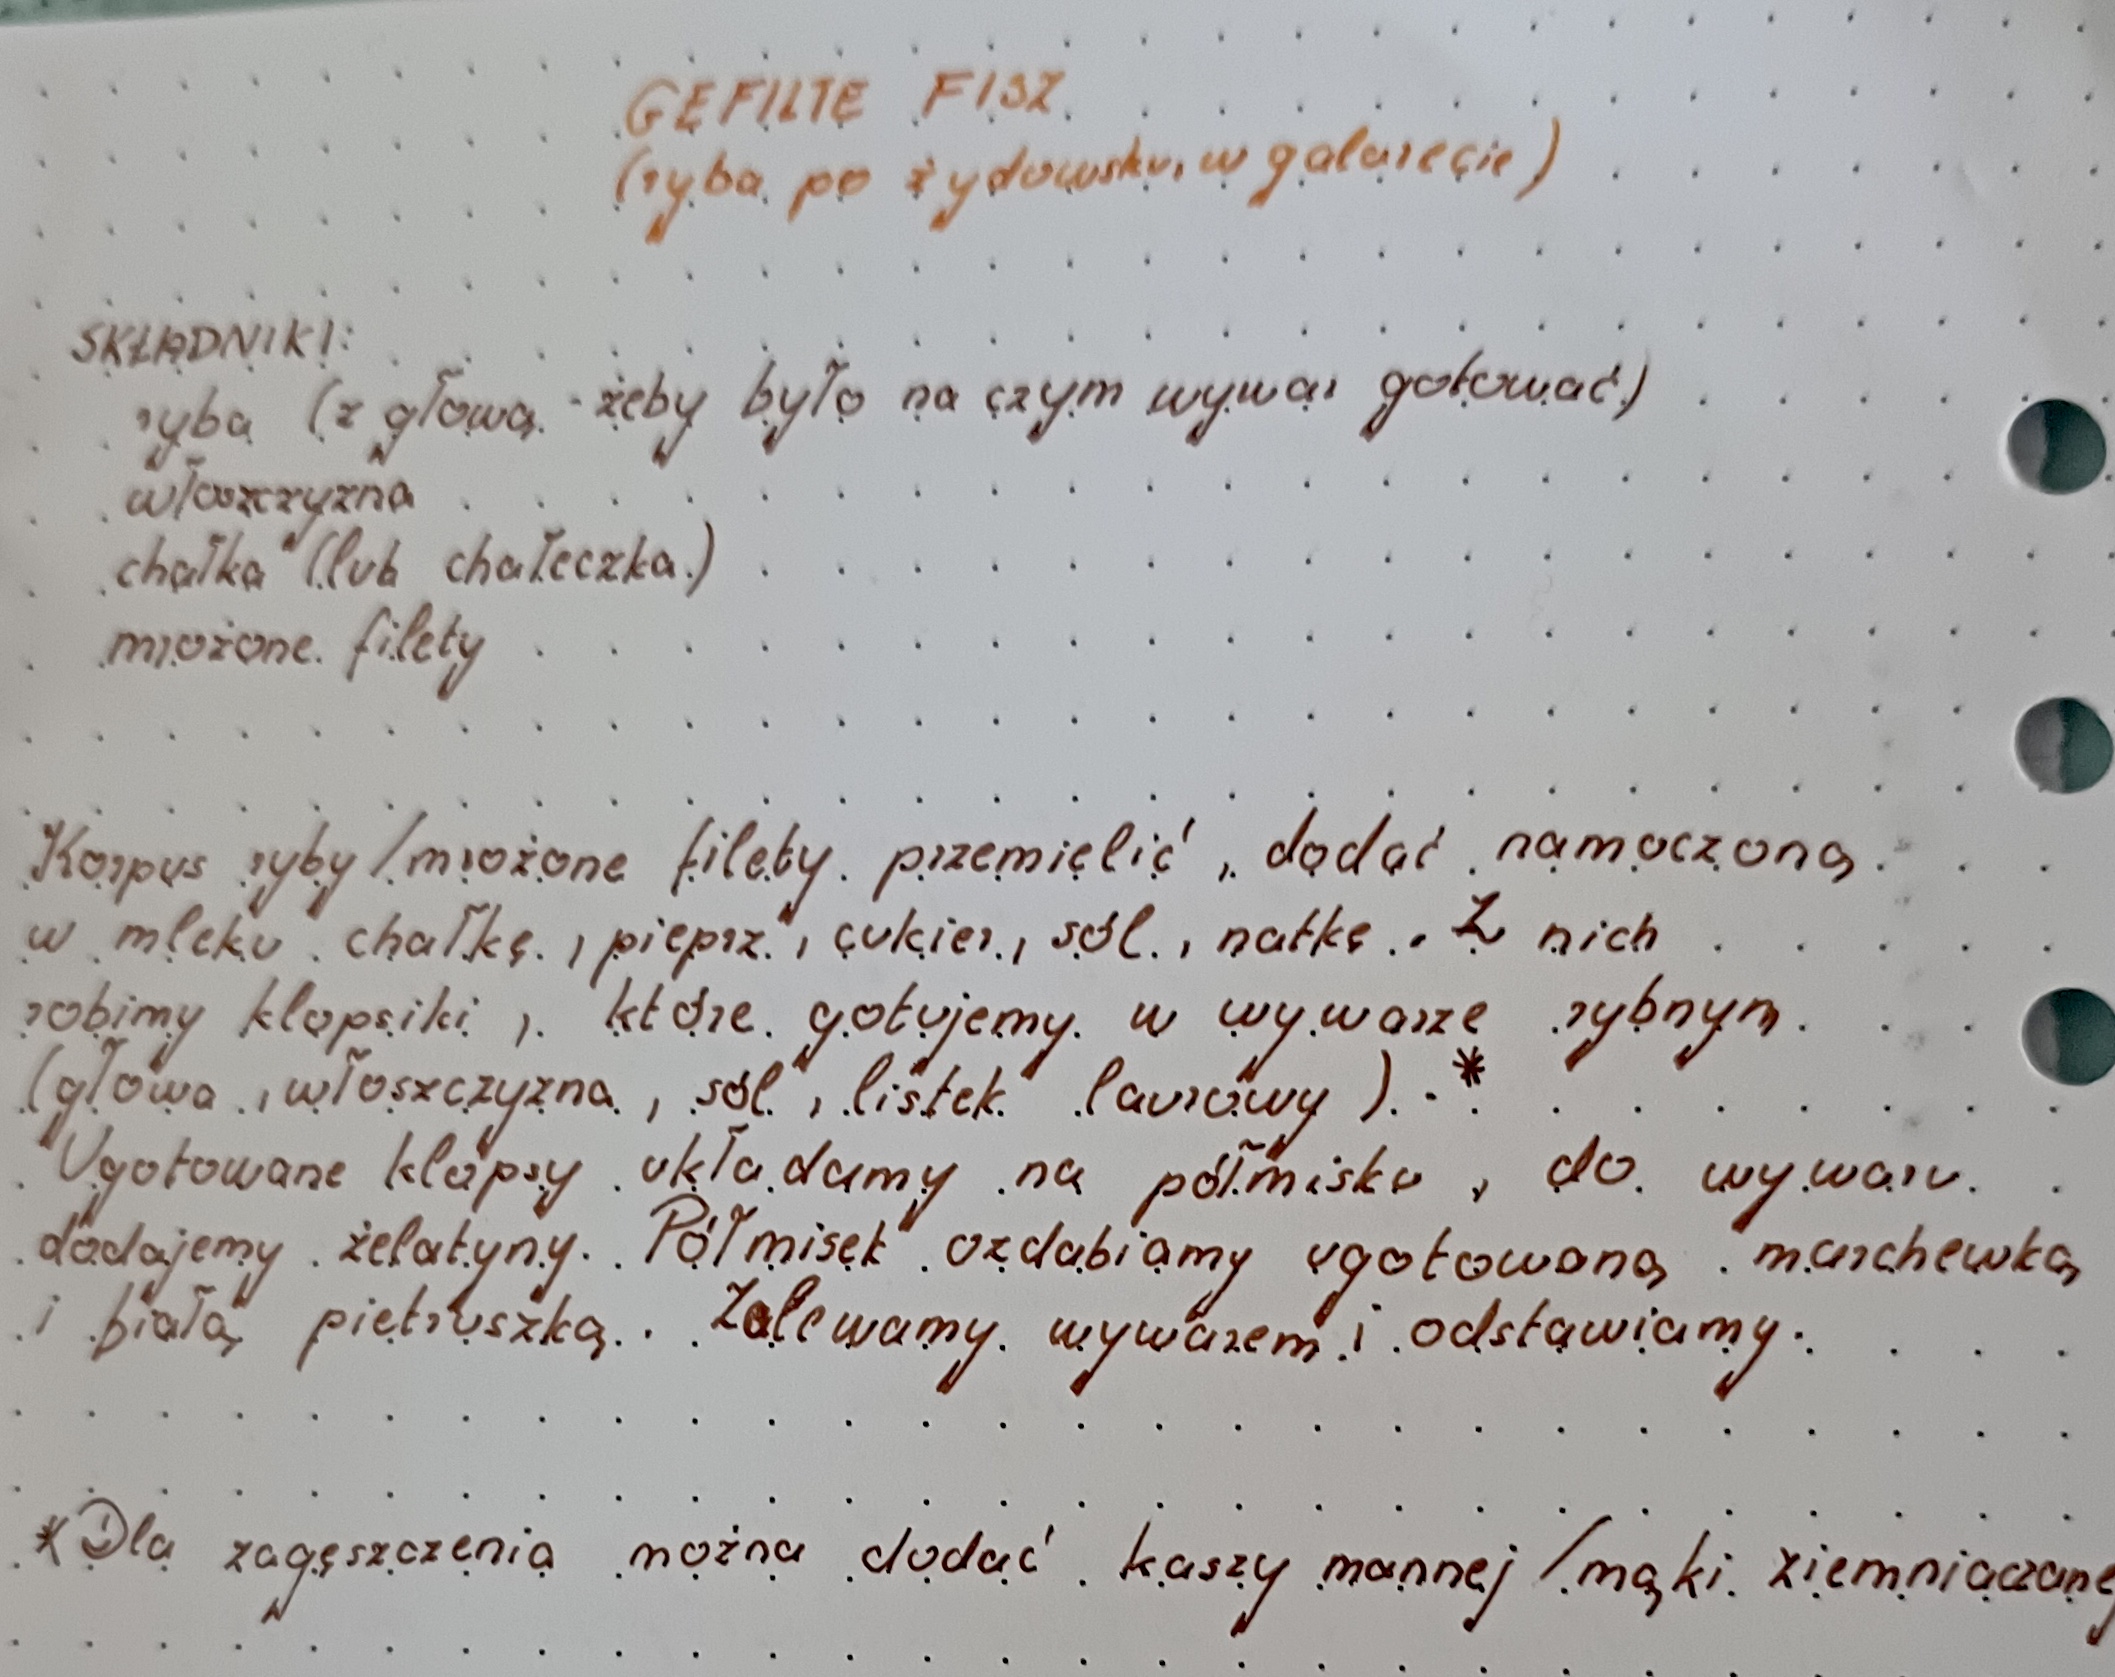 GEFILTE FISZ
(ryba po żydowsku, w galarecie)
SKŁADNIKI:
ryba (z głową - żeby było na czym wywar gotować)
włoszczyzna
chałka (lub chałeczka)
mrożone filety
Korpus ryby/mrożone filety przemielić, dodać namoczoną
w mleku chałkę, pieprz, cukier, sól, natkę. Z nich
robimy klopsiki, które gotujemy w wywarze rybnym
(głowa, włoszczyzna, sól, listek laurowy).*
Ugotowane klopsy układamy na półmisku, do wywaru
dodajemy żelatyny. Półmisek ozdabiamy ugotowaną marchewką
i białą pietruszką. Zalewamy wywarem i odstawiamy.
* Dla zagęszczenia można dodać kaszy mannej/mąki ziemniaczanej